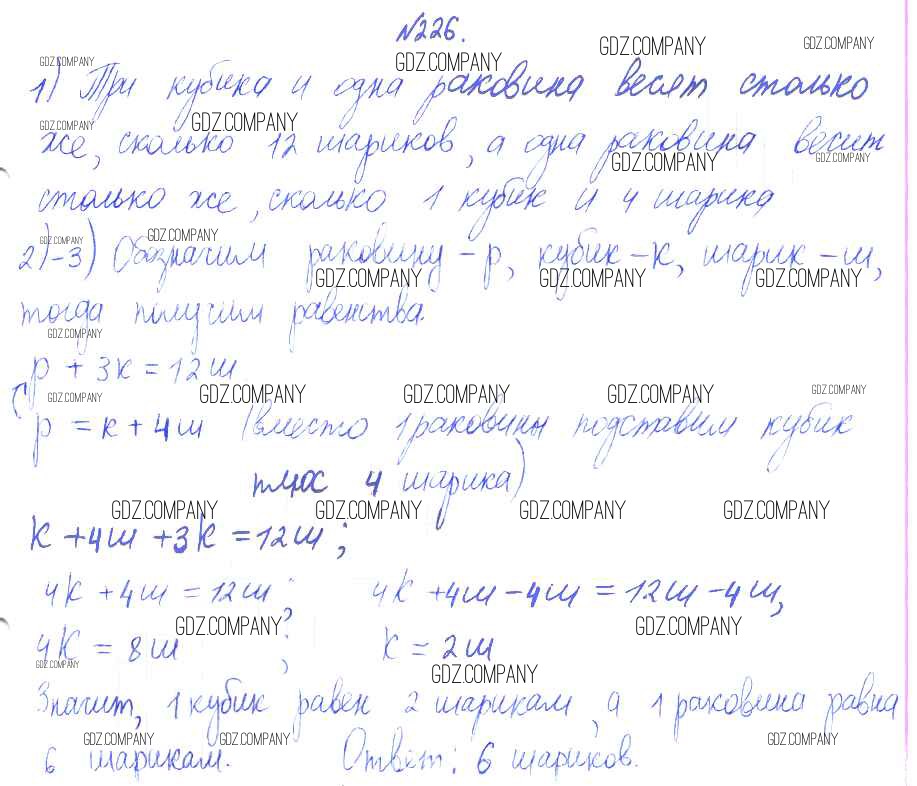 №226.
1) Три кубика и одна раковина весят столько
же, сколько 12 шариков, а одна раковина весит
столько же, сколько 1 кубик и 4 шарика
2)-3) Обозначим раковину - р, кубик - к, шарик - ш,
тогда получим равенства.
р + 3к = 12ш
р = к + 4ш (вместо 1 раковины подставим кубик
плюс 4 шарика)
к + 4ш + 3к = 12ш;
4к + 4ш = 12ш; 4к + 4ш - 4ш = 12ш - 4ш,
4к = 8ш, к = 2ш
Значит, 1 кубик равен 2 шарикам, а 1 раковина равна
6 шарикам. Ответ: 6 шариков.
GDZ.COMPANY